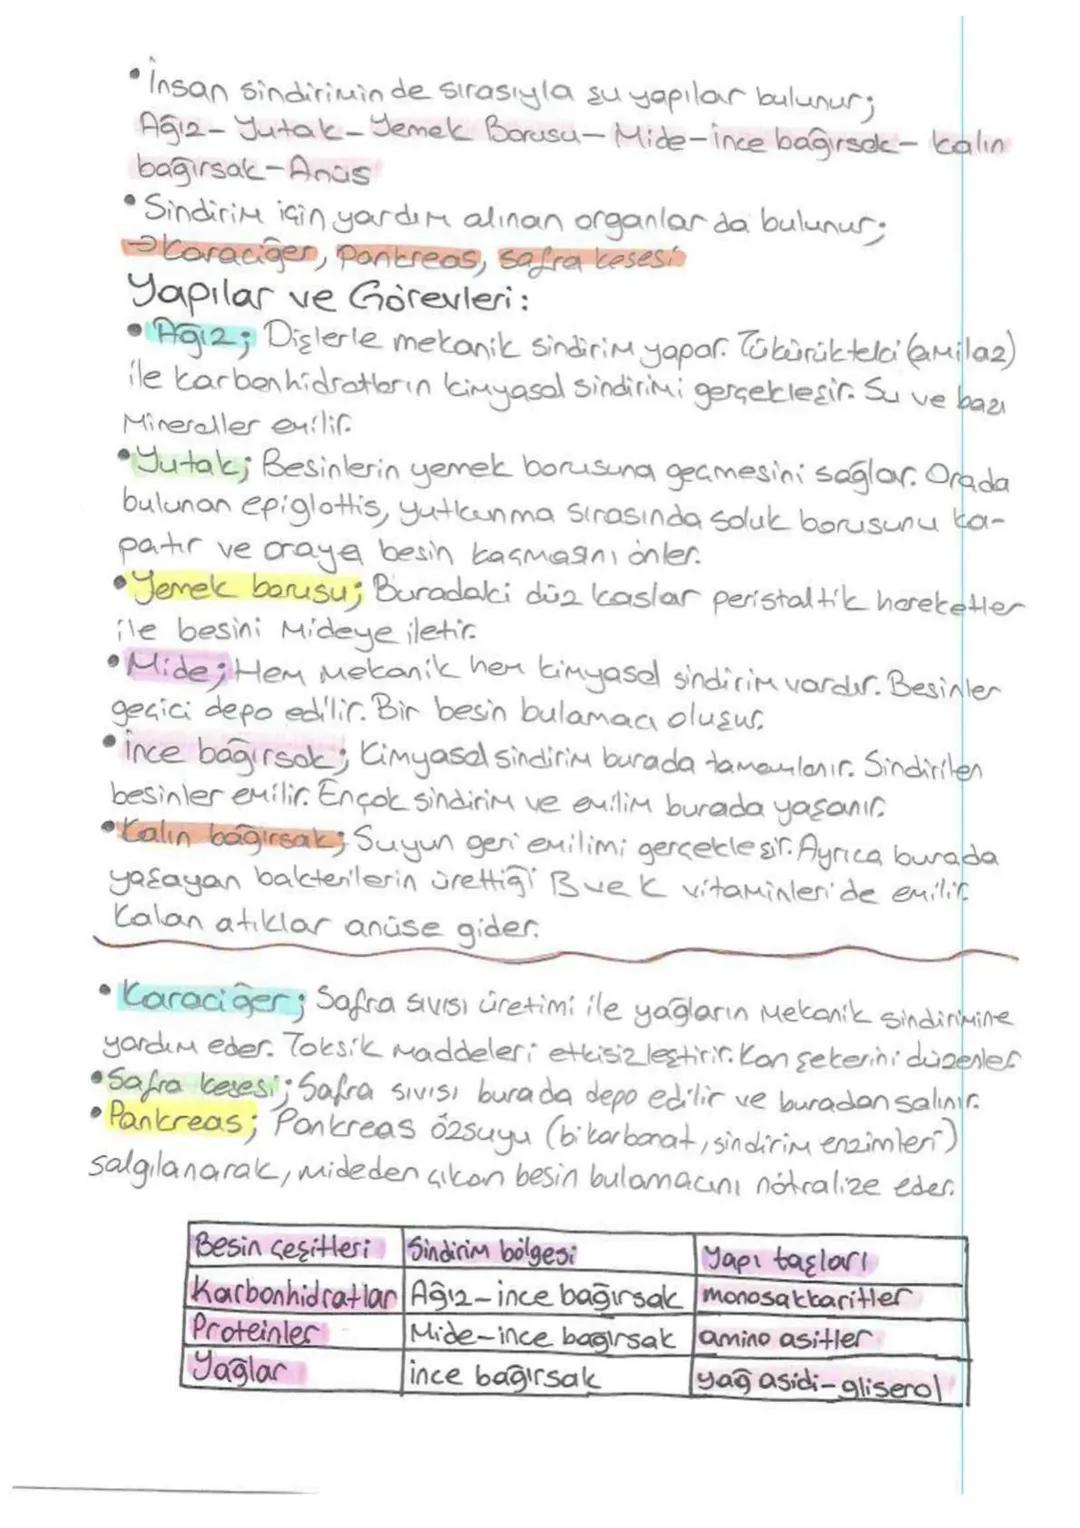 • İnsan sindiriminde sırasıyla şu yapılar bulunur;
Ağız- Yutak- Yemek Borusu- Mide-ince bağırsak- kalın
bağırsak-Anüs
• Sindirim için yardım alınan organlar da bulunur;
→ Karaciğer, pankreas, safra kesesi
Yapılar ve Görevleri:
• Ağız; Dişlerle mekanik sindirim yapar. Tükürükteki (amilaz)
ile karbonhidratların kimyasal sindirimi gerçekleşir. Su ve bazı
Mineraller emilir.
• Yutak; Besinlerin yemek borusuna geçmesini sağlar. Orada
bulunan epiglottis, yutkunma sırasında soluk borusunu ka-
patır ve oraya besin kaçmasını önler.
• Yemek borusu; Buradaki düz kaslar peristaltik hareketler
ile besini Mideye iletir.
• Mide; Hem Mekanik hem kimyasal sindirim vardır. Besinler
geçici depo edilir. Bir besin bulamacı oluşur.
• ince bağırsak; Kimyasal sindirim burada tamamlanır. Sindirilen
besinler emilir. En çok sindirim ve emilim burada yaşanır.
• Kalın bağırsak; Suyun geri emilimi gerçekleşir. Ayrıca burada
yaşayan bakterilerin ürettiği B ve K vitaminleri de emilir.
Kalan atıklar anüse gider.
• Karaciğer; Safra sıvısı üretimi ile yağların Mekanik sindirimine
yardım eder. Toksik maddeleri etkisizleştirir. Kan şekerini düzenler
• Safra kesesi; Safra sıvısı burada depo edilir ve buradan salınır.
• Pankreas; Pankreas özsuyu (bikarbonat, sindirim enzimleri)
salgılanarak, mideden çıkan besin bulamacını nötralize eder.
Besin çeşitleri Sindirim bölgesi Yapı taşları
Karbonhidratlar Ağız-ince bağırsak monosakkaritler
Proteinler Mide-ince bağırsak amino asitler
Yağlar ince bağırsak yağ asidi-gliserol